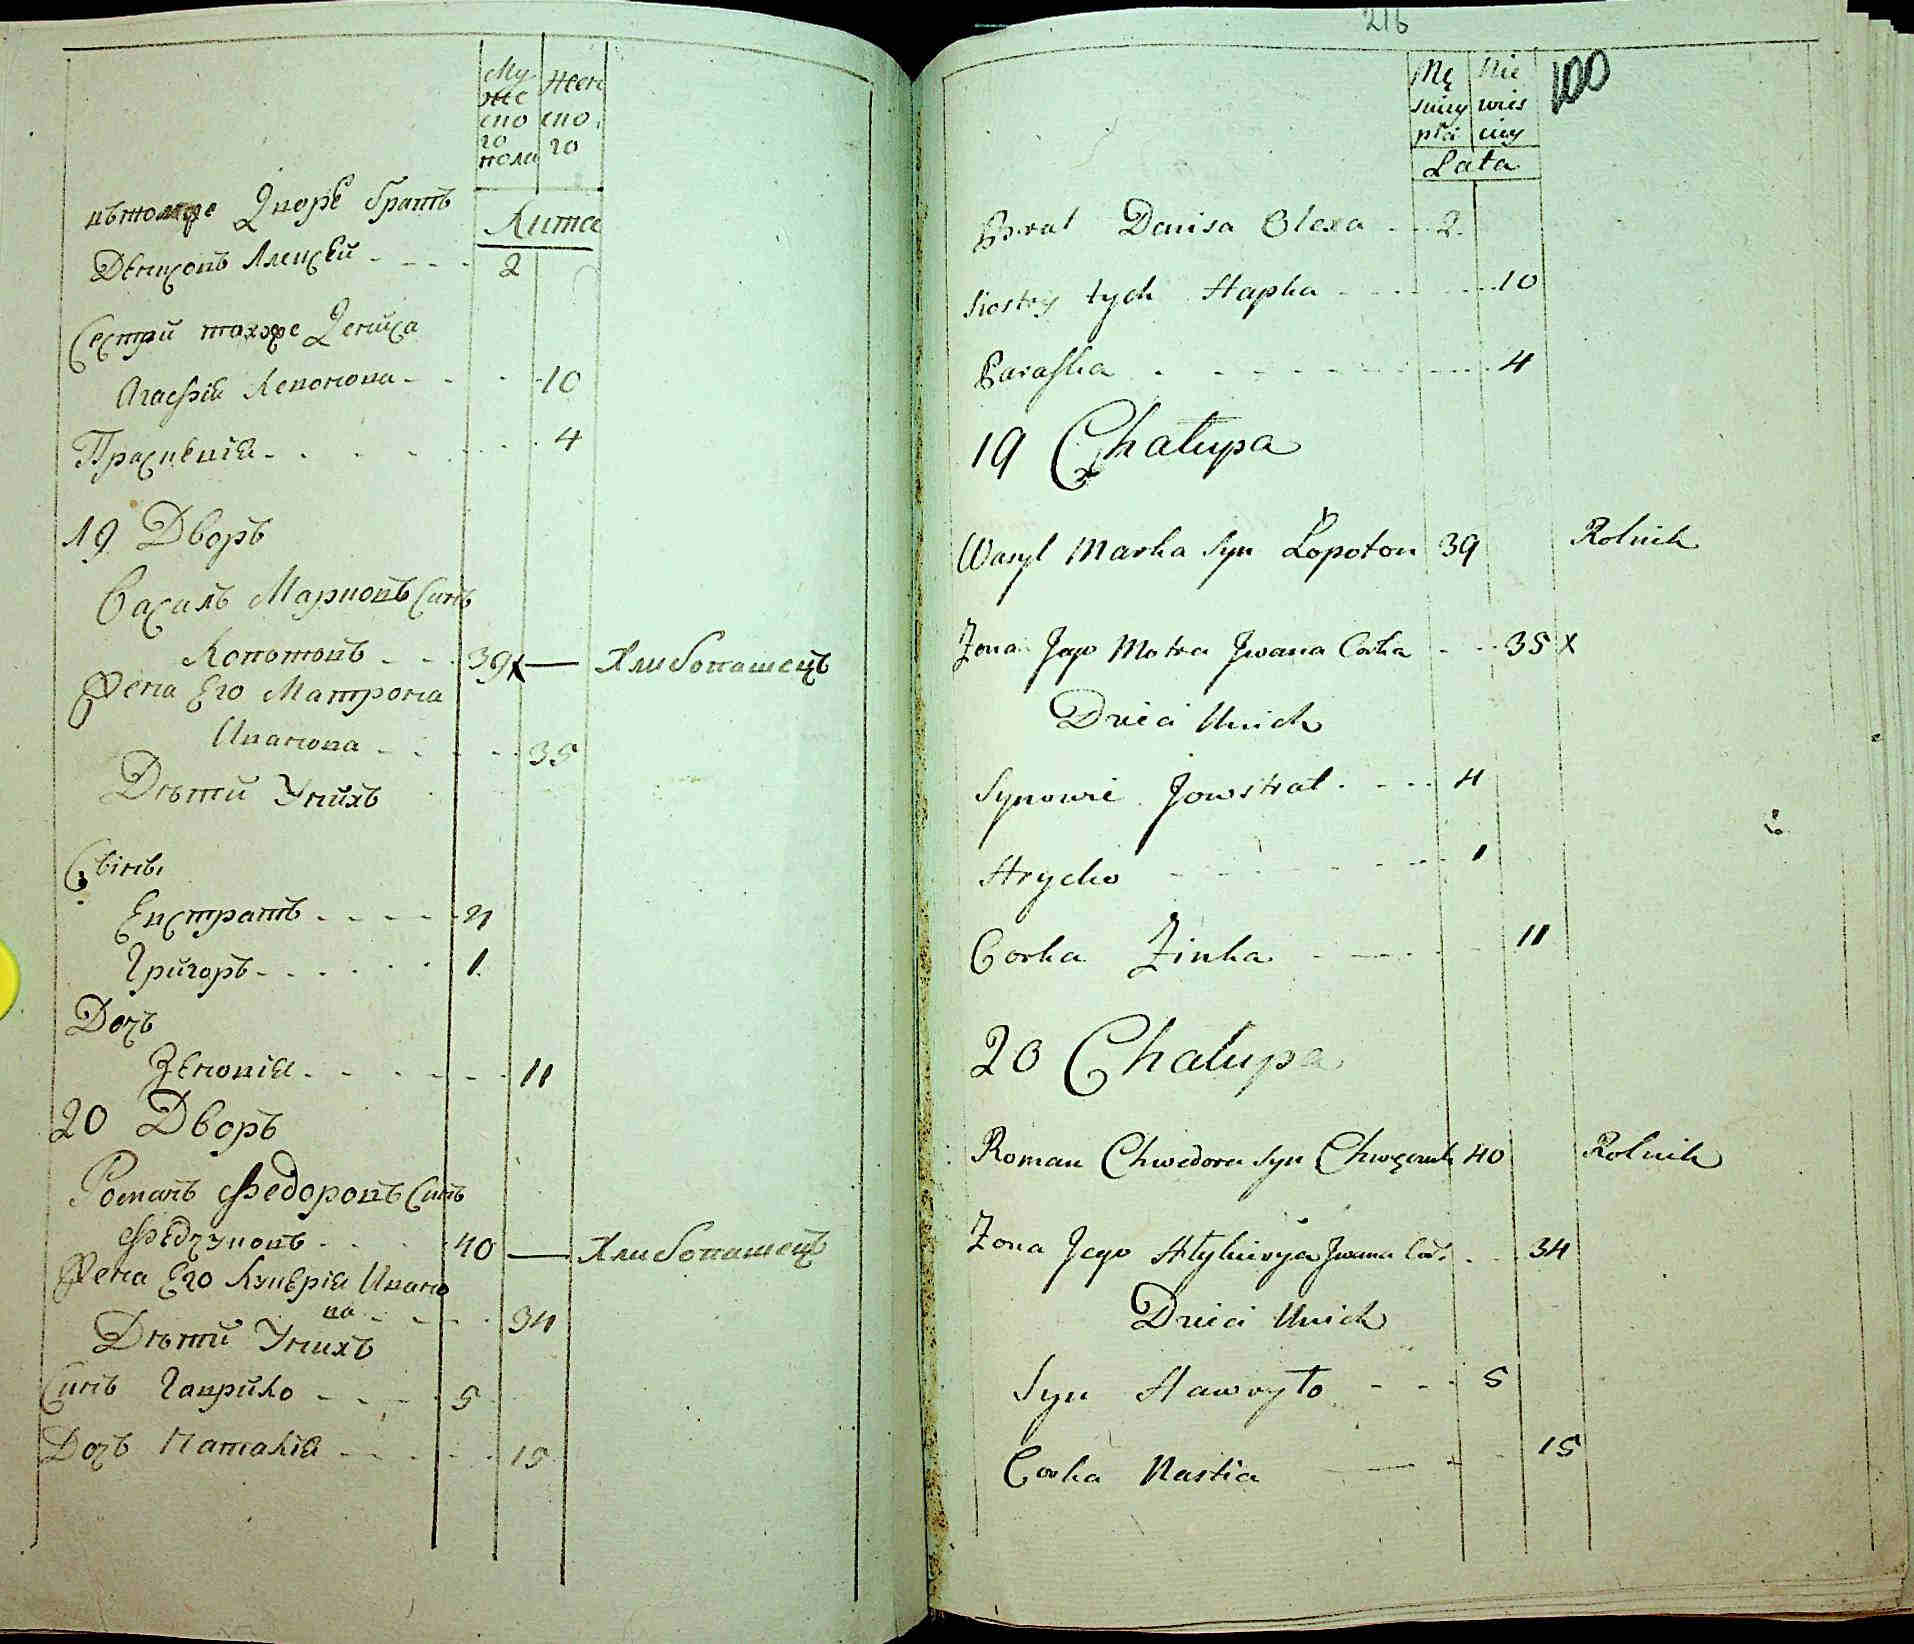 Му
же
ско
го
пола
Жен
ско
го
Лита
втомже Дворѣ братъ
Денисовъ Алексѣй - - - - 2
Сестри тохже Дениса
Агафія Леонова - - - 10
Прасковія - - - - - 4
19 Дворъ
Василь Марковъ Синъ
Лопотовъ - - - 39 x — Хлибопашецъ
Жена Его Матрона
Иванова - - - - - 35
Дѣти Унихъ
Сыны
Евстратъ - - - - - 4
Григоръ - - - - - - 1
Дочъ
Зеновія - - - - - - 11
20 Дворъ
Романъ Федоровъ Синъ
- - - - 40 — Хлибопашецъ
Жена Его Лукерія Ивано
ва - - - - 34
Дѣти Унихъ
Синъ Гаврило - - - - 5
Дочъ Наталія - - - - - 15
216
100
Mę
skiey
płci
Nie
wies
ciey
Lata
Brat Denisa Olexa - - 2
Siostry tych Hapka - - - - - - 10
Paraska - - - - - - - - - 4
19 Chałupa
Wasyl Marka Syn Łopoton 39 Rolnik
Zona Jego Motra Jwana Corka - - - 35 x
Dzieci Unich
Synowie Jowstrat - - - - 4
Hrycko - - - - - - - - 1
Corka Zinka - - - - - 11
20 Chałupa
Roman Chwedora Syn 40 Rolnik
Zona Jego Jwana Cor: - - - 34
Dzieci Unich
Syn Hawryło - - - 5
Corka Nastia - - - - 15